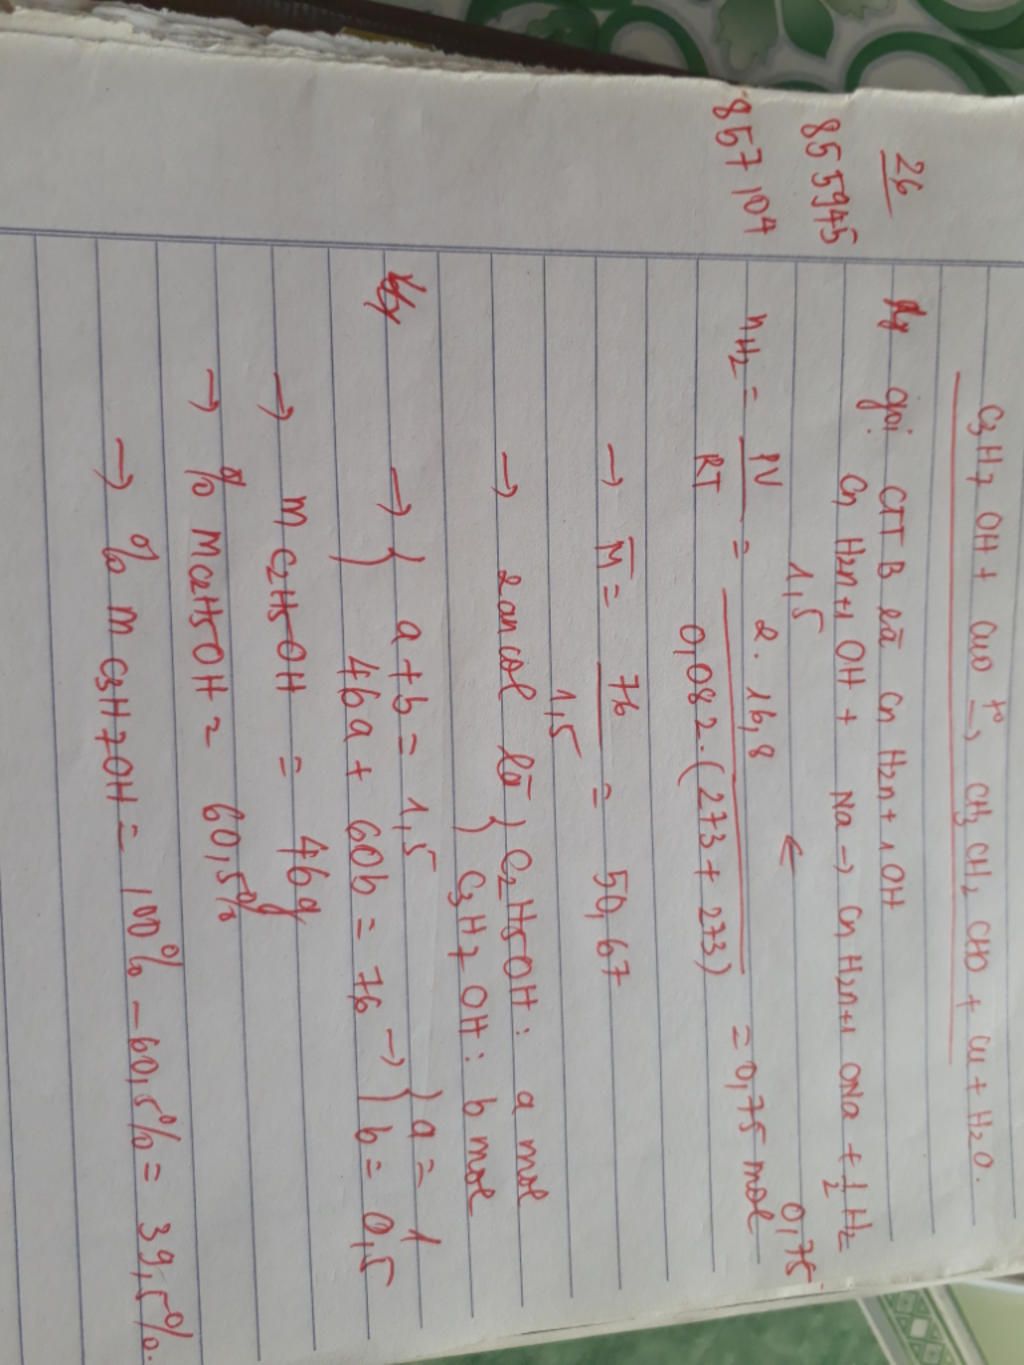 C3H7OH + CuO t°→ CH3CH2CHO + Cu + H2O.
26
gọi CTTB là CnH2n+1OH
855945
CnH2n+1OH + Na → CnH2n+1ONa + 1/2 H2
1,5 ← 0,75
857104
nH2 = PV/RT = 2.16,8/0,082.(273+273) = 0,75 mol
→ M̄ = 76/1,5 = 50,67
→ 2 ancol là } C2H5OH: a mol
} C3H7OH: b mol
→ } a+b = 1,5
} 46a + 60b = 76 → } a = 1
} b = 0,5
→ m C2H5OH = 46g
→ % mC2H5OH = 60,5%
→ % m C3H7OH = 100% - 60,5% = 39,5%.